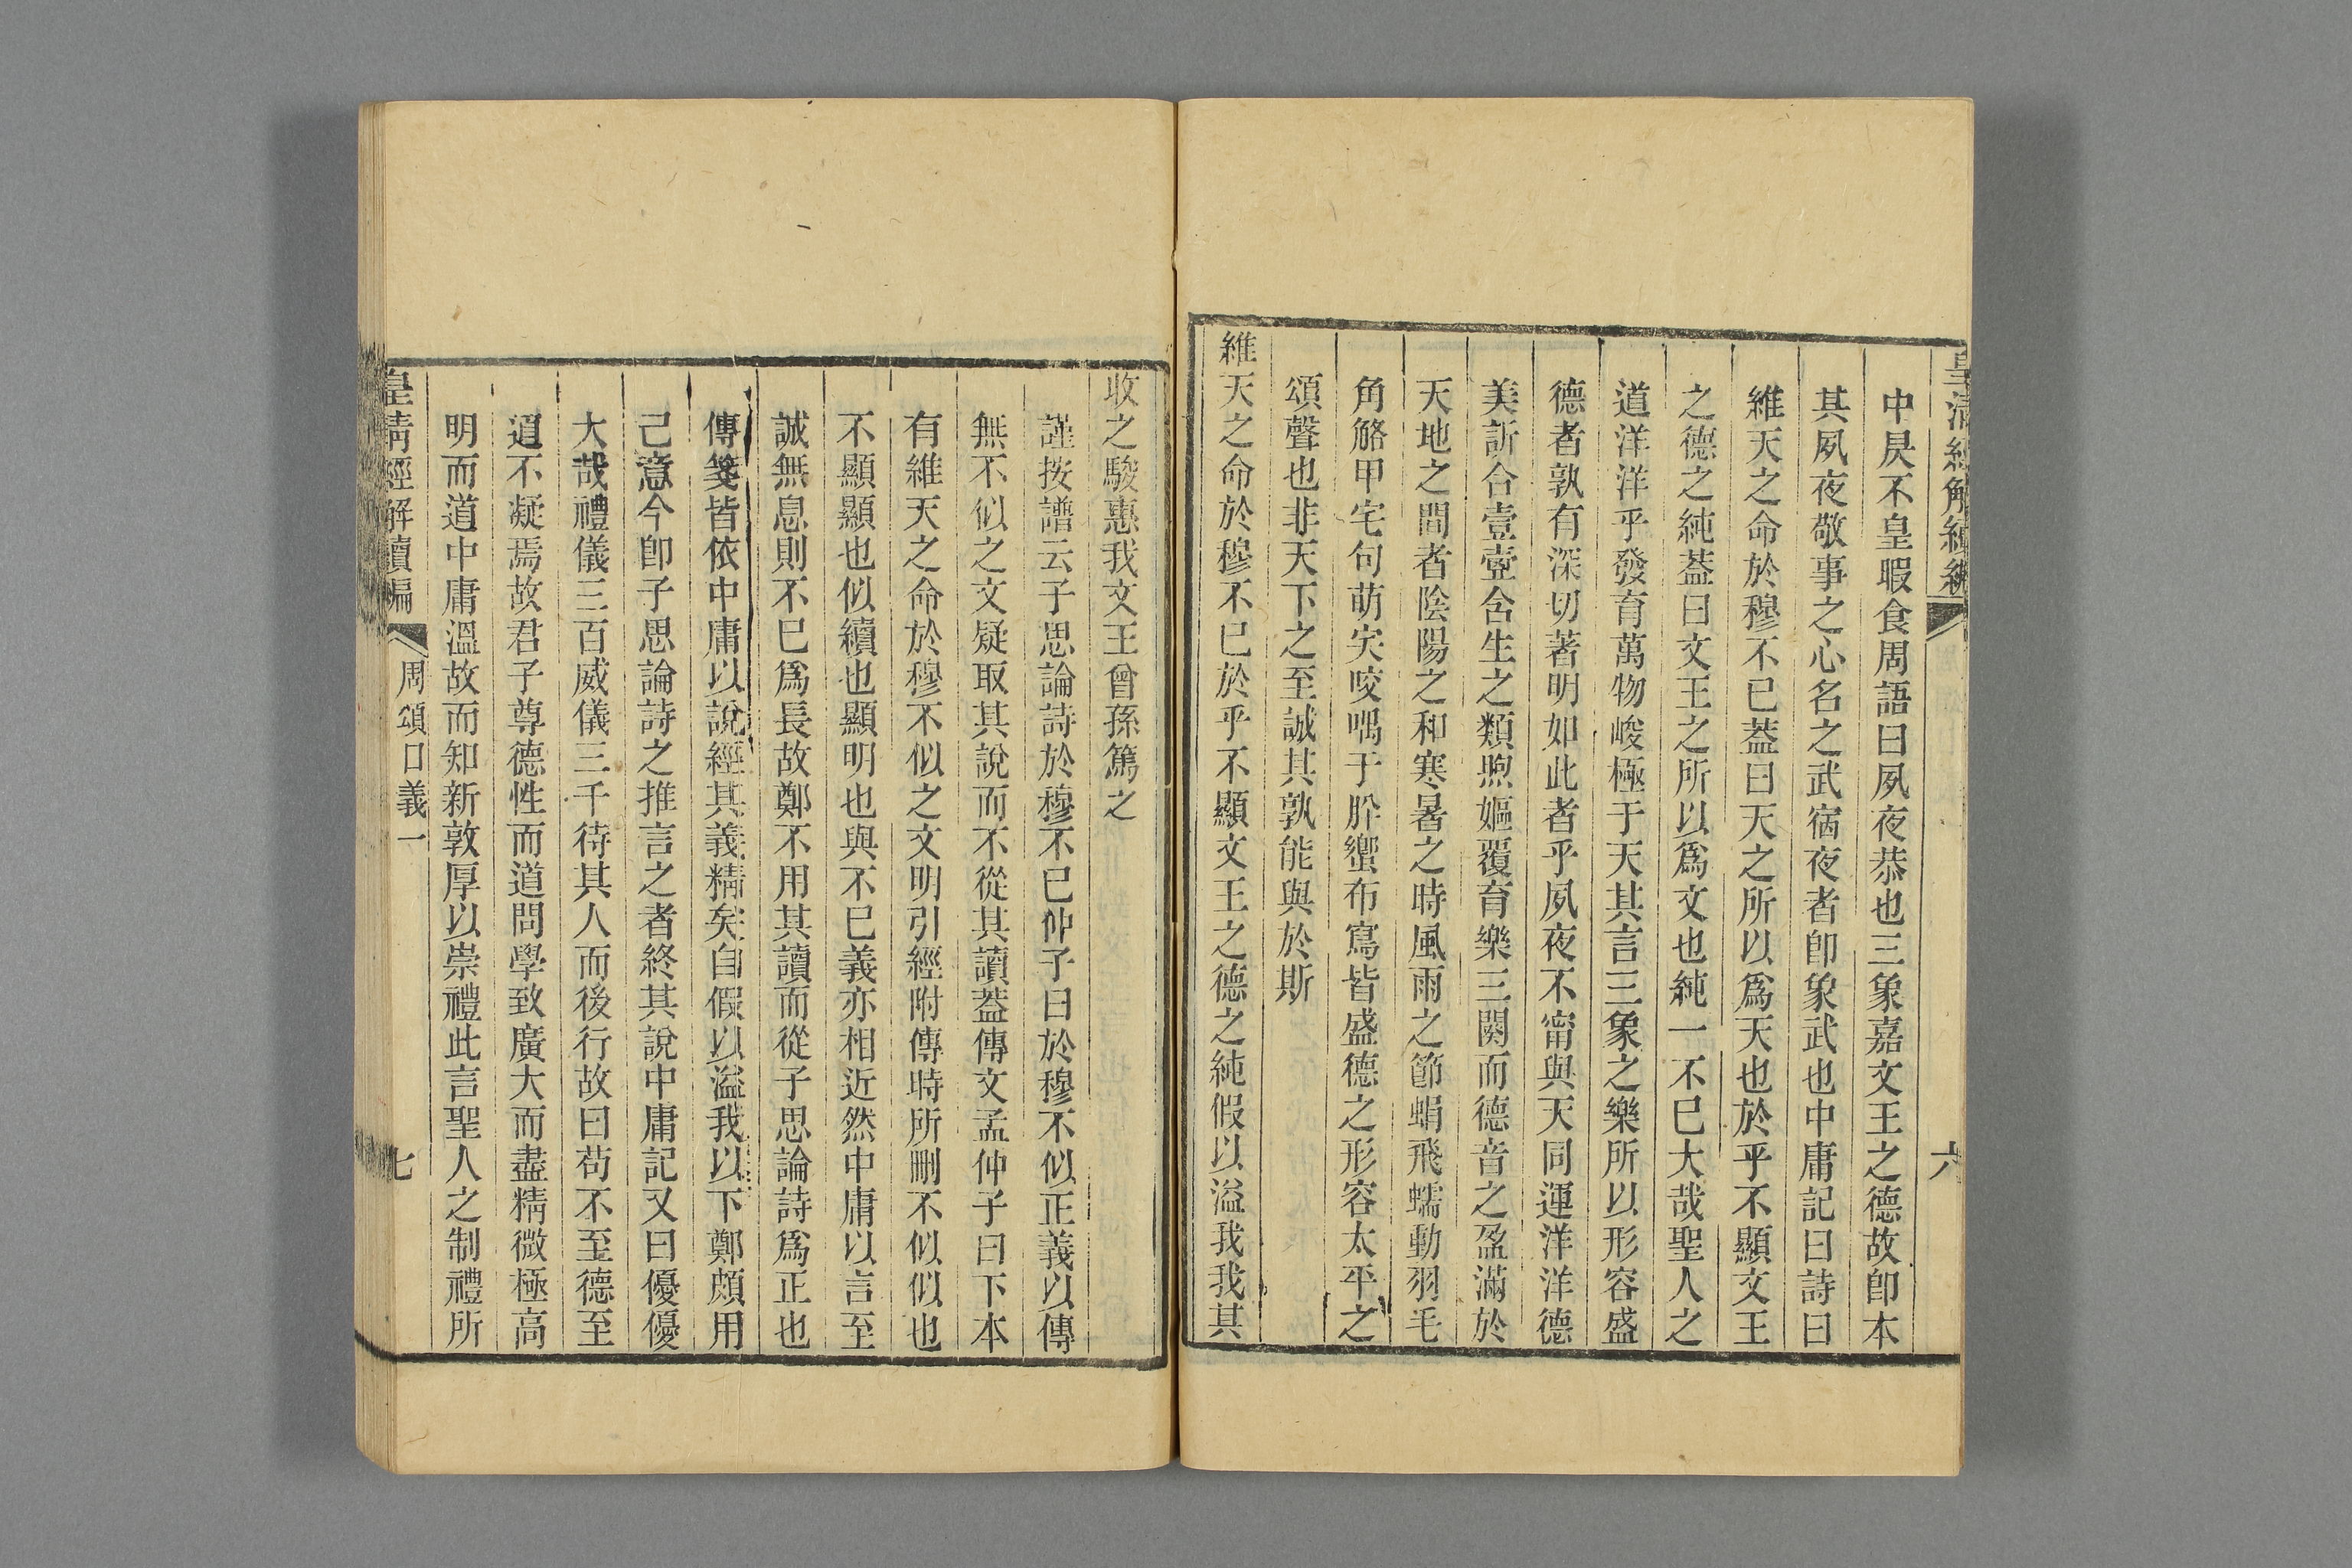 皇清經解續編
六
中昃不皇暇食周語曰夙夜恭也三象嘉文王之德故卽本
其夙夜敬事之心名之武宿夜者卽象武也中庸記曰詩曰
維天之命於穆不已葢曰天之所以爲天也於乎不顯文王
之德之純葢曰文王之所以爲文也純一不已大哉聖人之
道洋洋乎發育萬物峻極于天其言三象之樂所以形容盛
德者孰有深切著明如此者乎夙夜不甯與天同運洋洋德
美訢合壹壺含生之類煦嫗覆育樂三闋而德音之盈滿於
天地之間者陰陽之和寒暑之時風雨之節蜎飛蠕動羽毛
角觡甲宅句萌宎咬喁于肸蠁布寫皆盛德之形容太平之
頌聲也非天下之至誠其孰能與於斯
維天之命於穆不已於乎不顯文王之德之純假以溢我我其
收之駿惠我文王曾孫篤之
謹按譜云子思論詩於穆不已仲子曰於穆不似正義以傳
無不似之文疑取其說而不從其讀葢傳文孟仲子曰下本
有維天之命於穆不似之文明引經附傳時所刪不似似也
不顯顯也似續也顯明也與不已義亦相近然中庸以言至
誠無息則不已爲長故鄭不用其讀而從子思論詩爲正也
傳箋皆依中庸以說經其義精矣自假以溢我以下鄭頗用
己意今卽子思論詩之推言之者終其說中庸記又曰優優
大哉禮儀三百威儀三千待其人而後行故曰苟不至德至
道不凝焉故君子尊德性而道問學致廣大而盡精微極高
明而道中庸溫故而知新敦厚以崇禮此言聖人之制禮所
皇清經解續編
周頌口義一
七